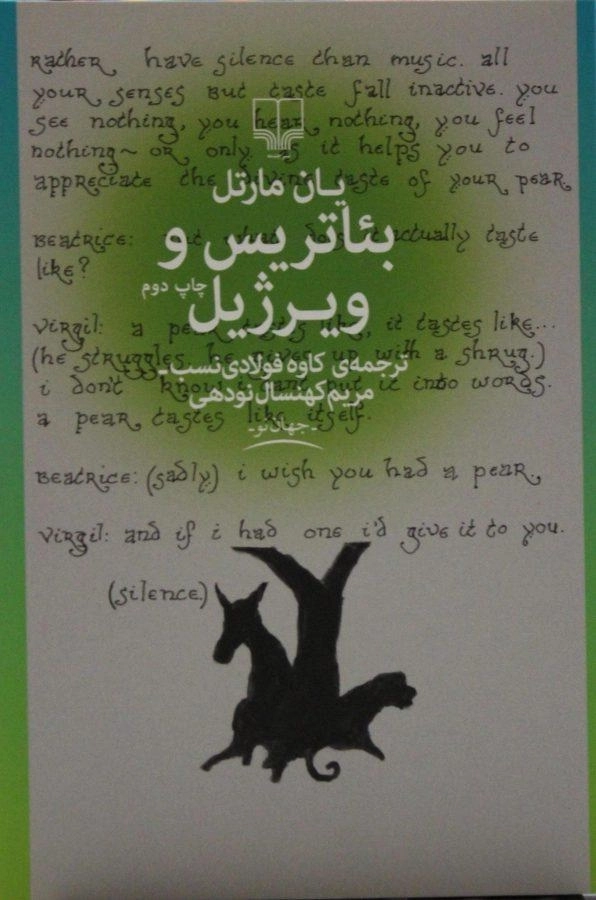 RATHER have silence than music. all
your senses but taste fall inactive. you
see nothing, you hear nothing, you feel
nothing~ or only as it helps you to
appreciate the taste of your pear
یان مارتل
BEATRICE: but what does it actually taste
like?
بئاتریس و
ویرژیل
چاپ دوم
Virgil: a pear tastes like, it tastes like...
(he struggles. he gives up with a shrug.)
ترجمه‌ی کاوه فولادی‌نسب ـ
i don't know. i can't put it into words.
مریم کهنسال نودهی
a pear tastes like itself.
ـ جهان‌نو ـ
BEATRICE: (sadly) i wish you had a pear.
Virgil: and if i had one i'd give it to you.
(silence.)